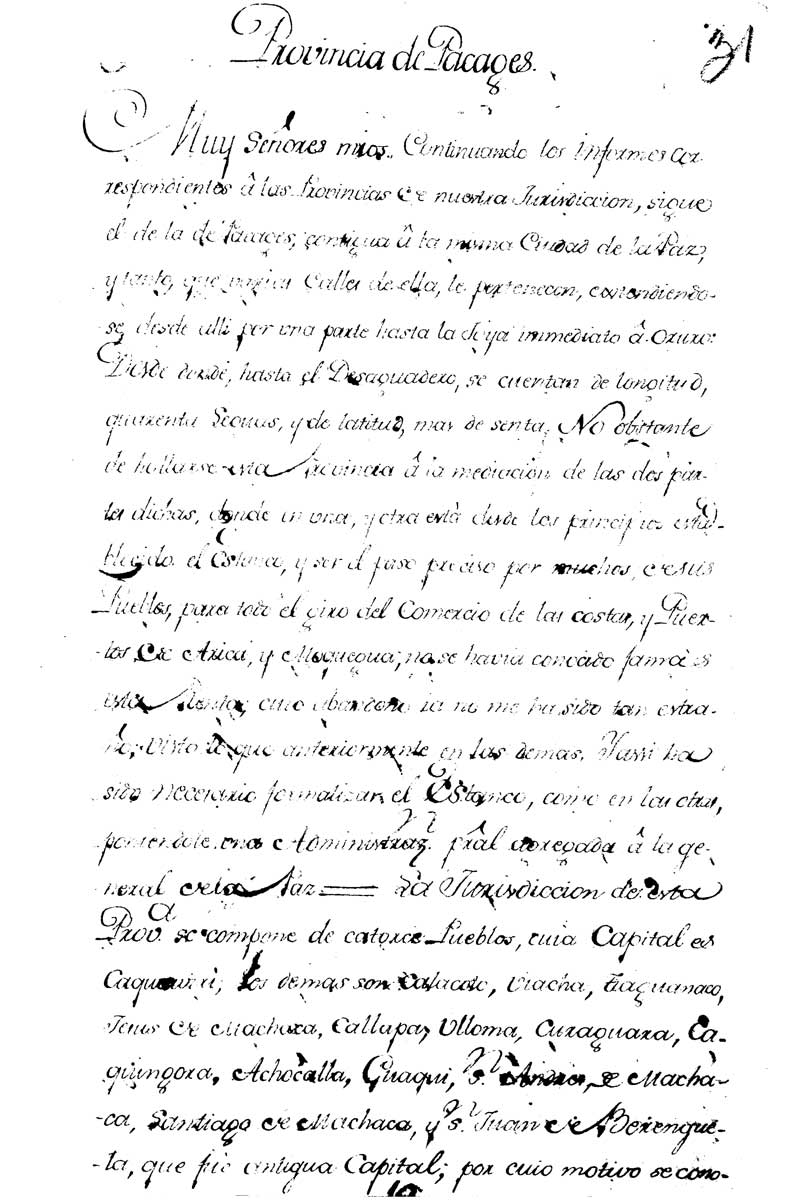 Provincia de Pacages.
Muy Señores mios. Continuando los Informes cor-
respondientes â las Provincias de nuestra Jurisdiccion, sigue
el de la de Pacages, contigua â la misma Ciudad de la Paz,
y tanto, que varias Calles de ella, le pertenecen, extendiendo-
se, desde alli por una parte hasta la Joya immediato â Oruro:
Desde donde, hasta el Desaguadero, se cuentan de longitud,
quarenta Leguas, y de latitud, mas de senta. No obstante
de hallarse esta Provincia â la mediacion de las dos par-
tes dichas, donde en una, y otra està desde los principios esta-
blecido el Estanco, y ser el paso preciso por muchos, de sus
Pueblos, para todo el giro del Comercio de las costas, y Puer-
-tos de Arica, y Moquegua, no se havia conocido jamas
esta Renta, cuio abandono ia no me ha sido tan estra-
ño, visto lo que anteriormente en las demas. Y assi ha
sido necesario formalizar el Estanco, como en las otras,
poniendole una Administraz.n prâl agregada â la ge-
neral de la Paz = La Jurisdiccion de esta
Prov.a se compone de catorce Pueblos, cuia Capital es
Caquiaviri; los demas son Calacoto, Viacha, Tiaguanaco,
Jesus de Machaca, Callapa, Ulloma, Curaguara, Ca-
quingora, Achocalla, Guaqui, S.n Andres de Macha-
-ca, Santiago de Machaca, y S.n Juan de Berengue-
-la, que fue antigua Capital; por cuio motivo se cono-